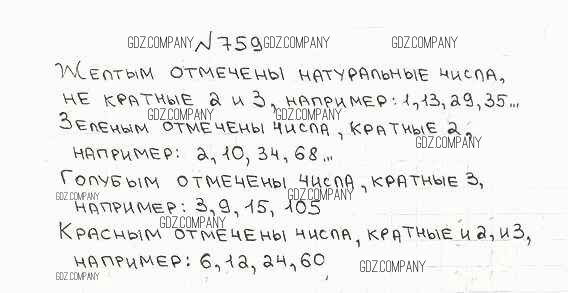 GDZ.COMPANY №759 GDZ.COMPANY GDZ.COMPANY
Желтым отмечены натуральные числа,
не кратные 2 и 3, например: 1, 13, 29, 35...
GDZ.COMPANY GDZ.COMPANY
Зеленым отмечены числа, кратные 2,
GDZ.COMPANY
например: 2, 10, 34, 68...
Голубым отмечены числа, кратные 3,
GDZ.COMPANY GDZ.COMPANY
например: 3, 9, 15, 105
GDZ.COMPANY
Красным отмечены числа, кратные и 2, и 3,
например: 6, 12, 24, 60
GDZ.COMPANY GDZ.COMPANY